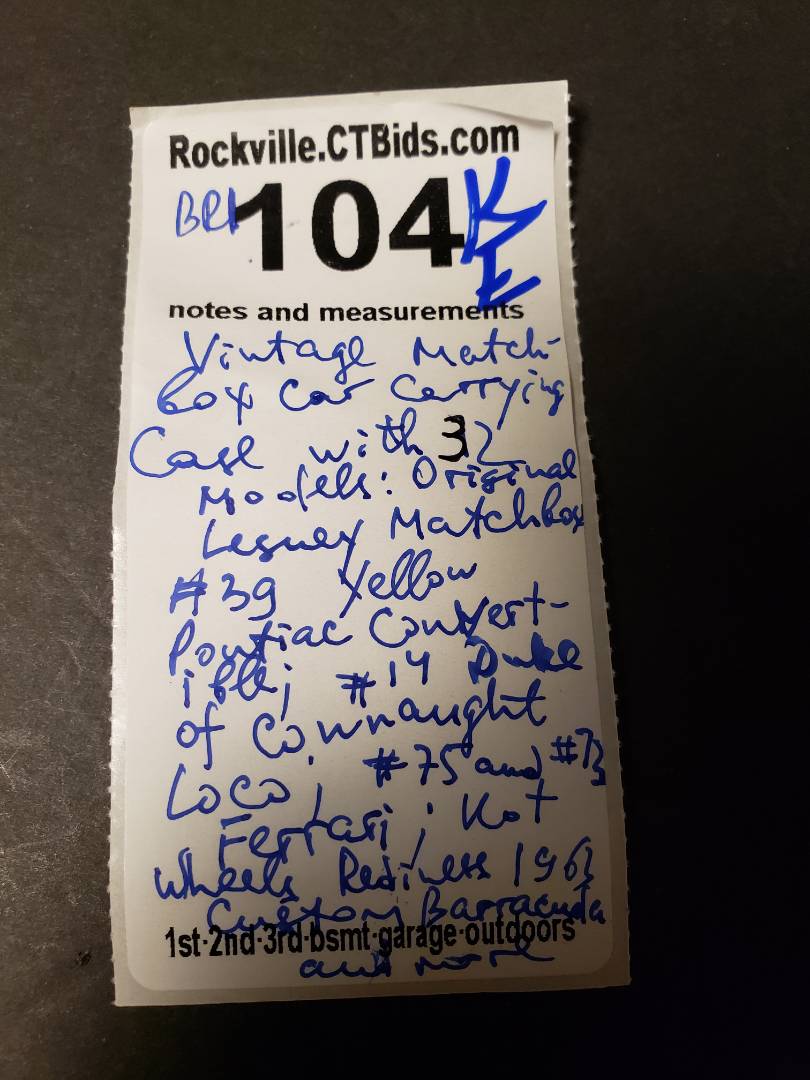 Rockville.CTBids.com
BR1 104 KE
notes and measurements
Vintage Match-
box car carrying
Case with 32
Models: Original
Lesney Matchbox
#39 Yellow
Pontiac Convert-
ible; #14 Duke
of Connaught
Loco; #75 and #73
Ferrari; Hot
Wheels Redliness 1963
Custom Barracuda
1st·2nd·3rd·bsmt·garage·outdoors
and more